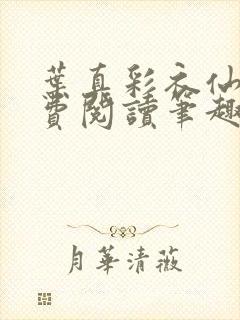 葉真彩衣仙
費閱讀筆趣
月華清薇